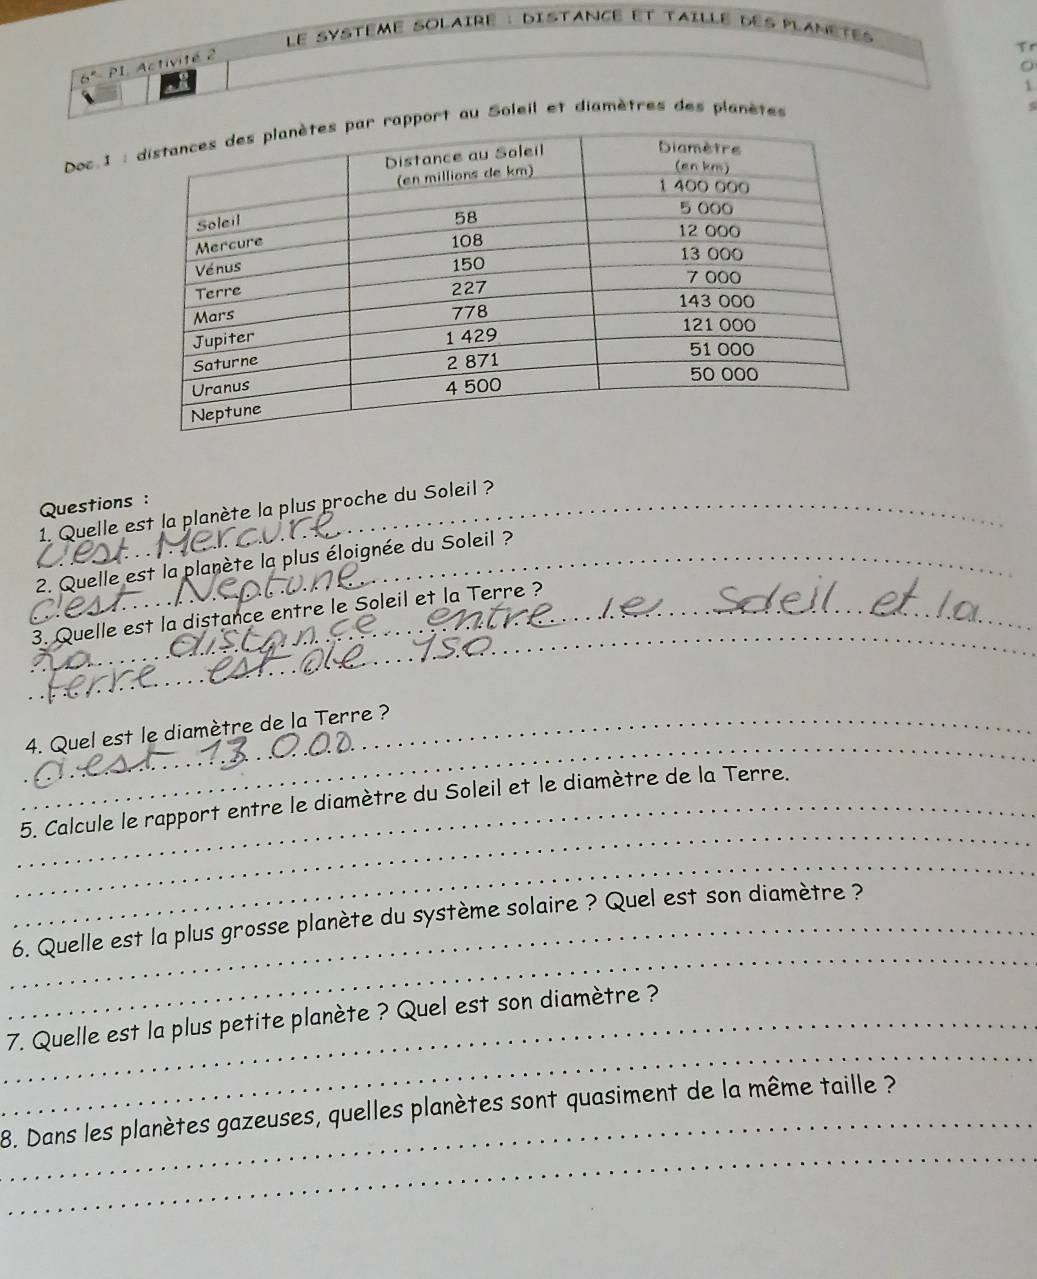 LE SYSTEME SOLAIRE : DISTANCE ET TAILLE DES PLANETES
6e- PI. Activité 2
Tr
O
1
s
Doc.1 : distances des planètes par rapport au Soleil et diamètres des planètes
Distance au Soleil (en millions de km) Diamètre (en km)
Soleil 1 400 000
Mercure 58 5 000
Vénus 108 12 000
Terre 150 13 000
Mars 227 7 000
Jupiter 778 143 000
Saturne 1 429 121 000
Uranus 2 871 51 000
Neptune 4 500 50 000
Questions :
1. Quelle est la planète la plus proche du Soleil ?
C'est Mercure
2. Quelle est la planète la plus éloignée du Soleil ?
C'est Neptune
3. Quelle est la distance entre le Soleil et la Terre ?
La distance entre le Soleil et la
terre est de 150
4. Quel est le diamètre de la Terre ?
C'est 13 000
5. Calcule le rapport entre le diamètre du Soleil et le diamètre de la Terre.
6. Quelle est la plus grosse planète du système solaire ? Quel est son diamètre ?
7. Quelle est la plus petite planète ? Quel est son diamètre ?
8. Dans les planètes gazeuses, quelles planètes sont quasiment de la même taille ?